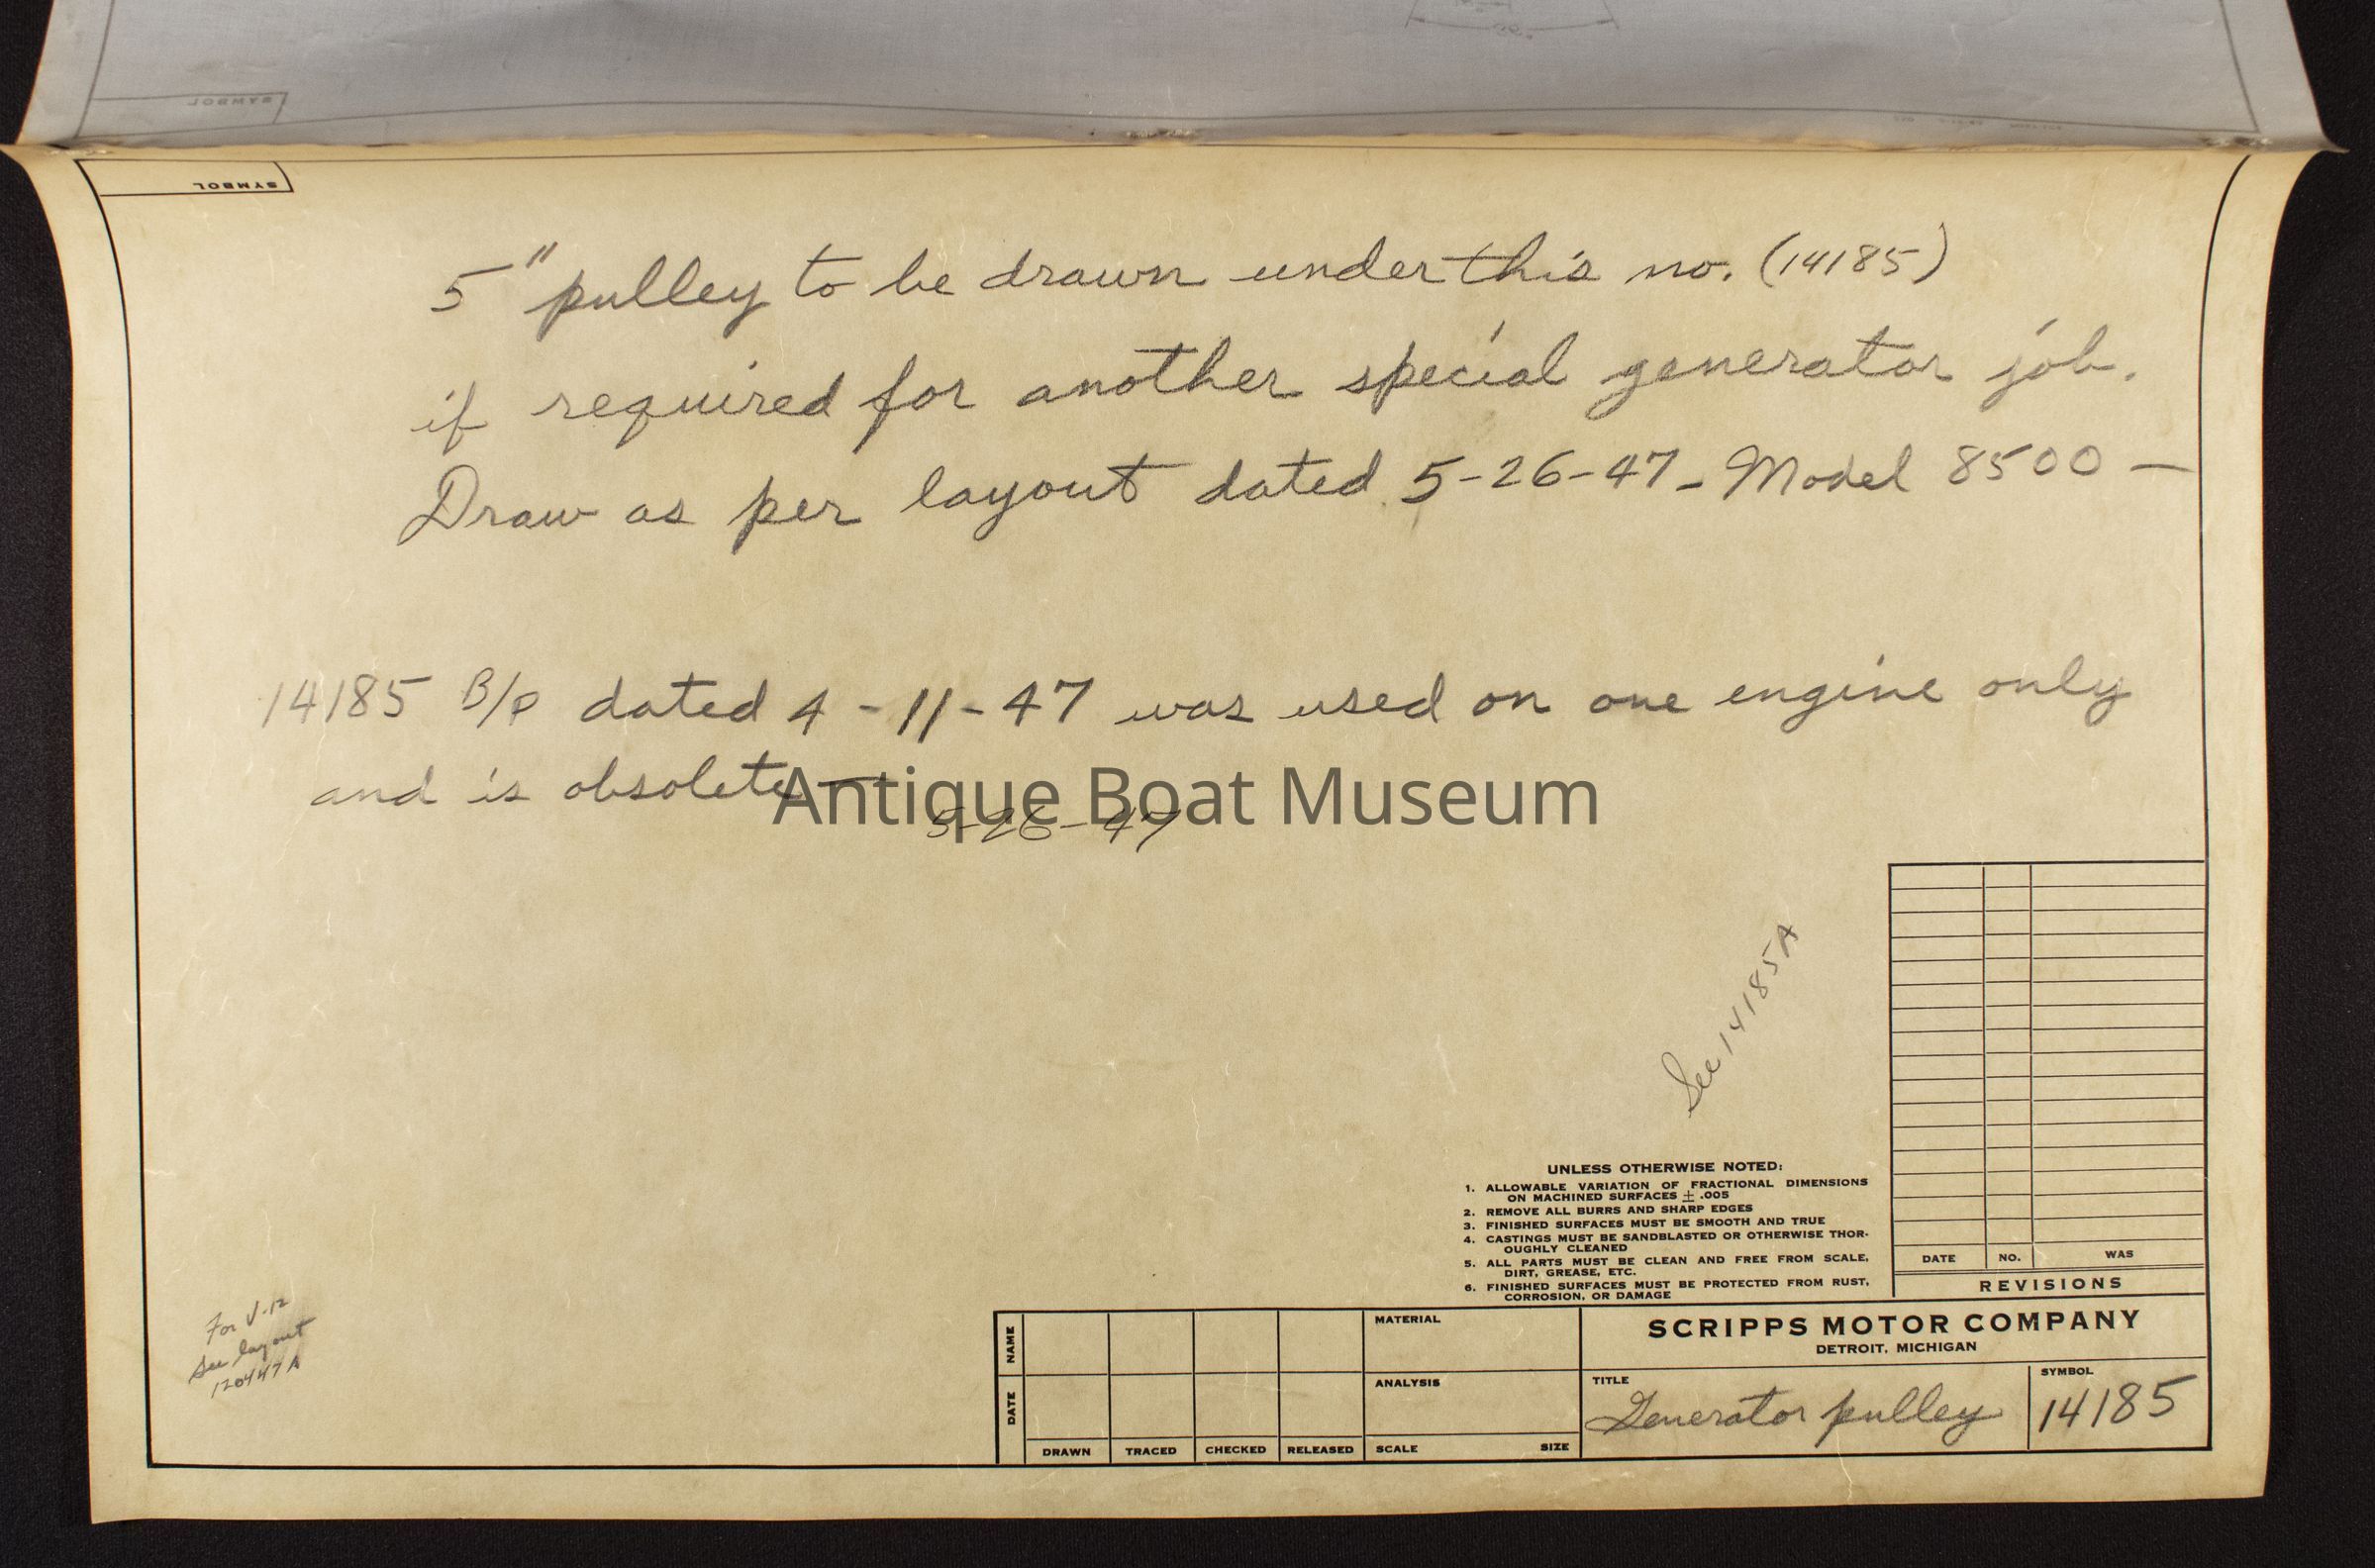 SYMBOL
SYMBOL
5" pulley to be drawn under this no. (14185)
if required for another special generator job.
Draw as per layout dated 5-26-47 - Model 8500 -
14185 B/P dated 4-11-47 was used on one engine only
and is obsolete -
5-26-47
Antique Boat Museum
See 14185A
UNLESS OTHERWISE NOTED:
1. ALLOWABLE VARIATION OF FRACTIONAL DIMENSIONS
ON MACHINED SURFACES ± .005
2. REMOVE ALL BURRS AND SHARP EDGES
3. FINISHED SURFACES MUST BE SMOOTH AND TRUE
4. CASTINGS MUST BE SANDBLASTED OR OTHERWISE THOR-
OUGHLY CLEANED
5. ALL PARTS MUST BE CLEAN AND FREE FROM SCALE,
DIRT, GREASE, ETC.
6. FINISHED SURFACES MUST BE PROTECTED FROM RUST,
CORROSION, OR DAMAGE
DATE NO. WAS
REVISIONS
For V-12
See layout
120447A
NAME
DATE
DRAWN TRACED CHECKED RELEASED
MATERIAL
ANALYSIS
SCALE SIZE
SCRIPPS MOTOR COMPANY
DETROIT, MICHIGAN
TITLE
Generator pulley
SYMBOL
14185